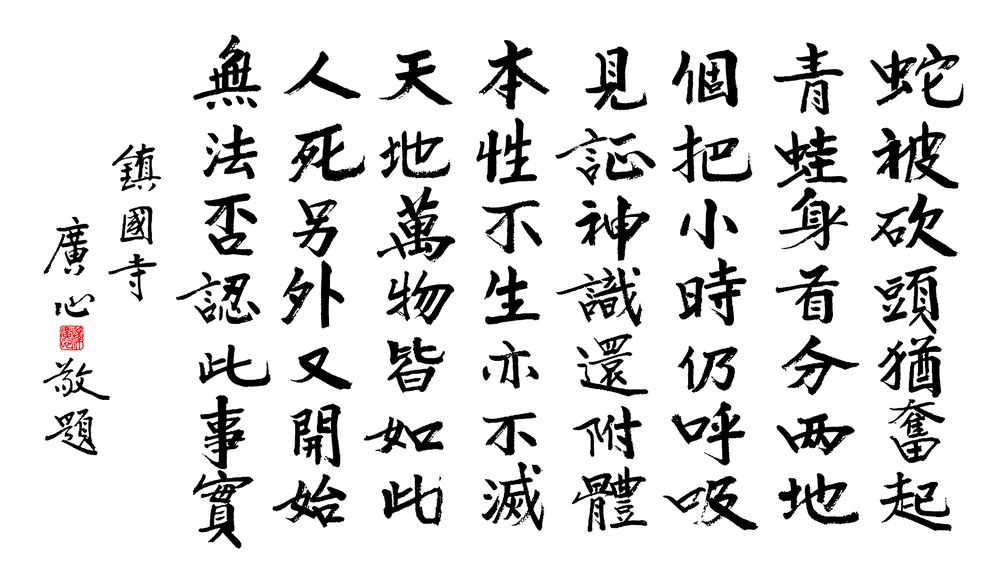 蛇被砍頭猶奮起
青蛙身首分兩地
個把小時仍呼吸
見証神識還附體
本性不生亦不滅
天地萬物皆如此
人死另外又開始
無法否認此事實
鎮國寺
廣心敬題